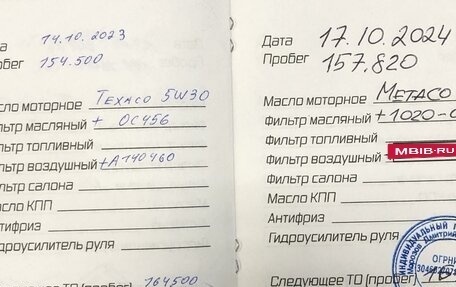 та 14.10.2023
обег 154.500
асло моторное Texaco 5W30
льтр масляный + OC456
льтр топливный
льтр воздушный +A140460
льтр салона
асло КПП
нтифриз
идроусилитель руля
ТО (пробег) 164500
Дата 17.10.2024
Пробег 157.820
Масло моторное METACO
Фильтр масляный +1020-0
Фильтр топливный
Фильтр воздушный
MBIB.RU
Фильтр салона
Масло КПП
Антифриз
Гидроусилитель руля
Следующее ТО (пробег)
ИНДИВИДУАЛЬНЫЙ П
Морозов Дмитрий
ОГРНИ